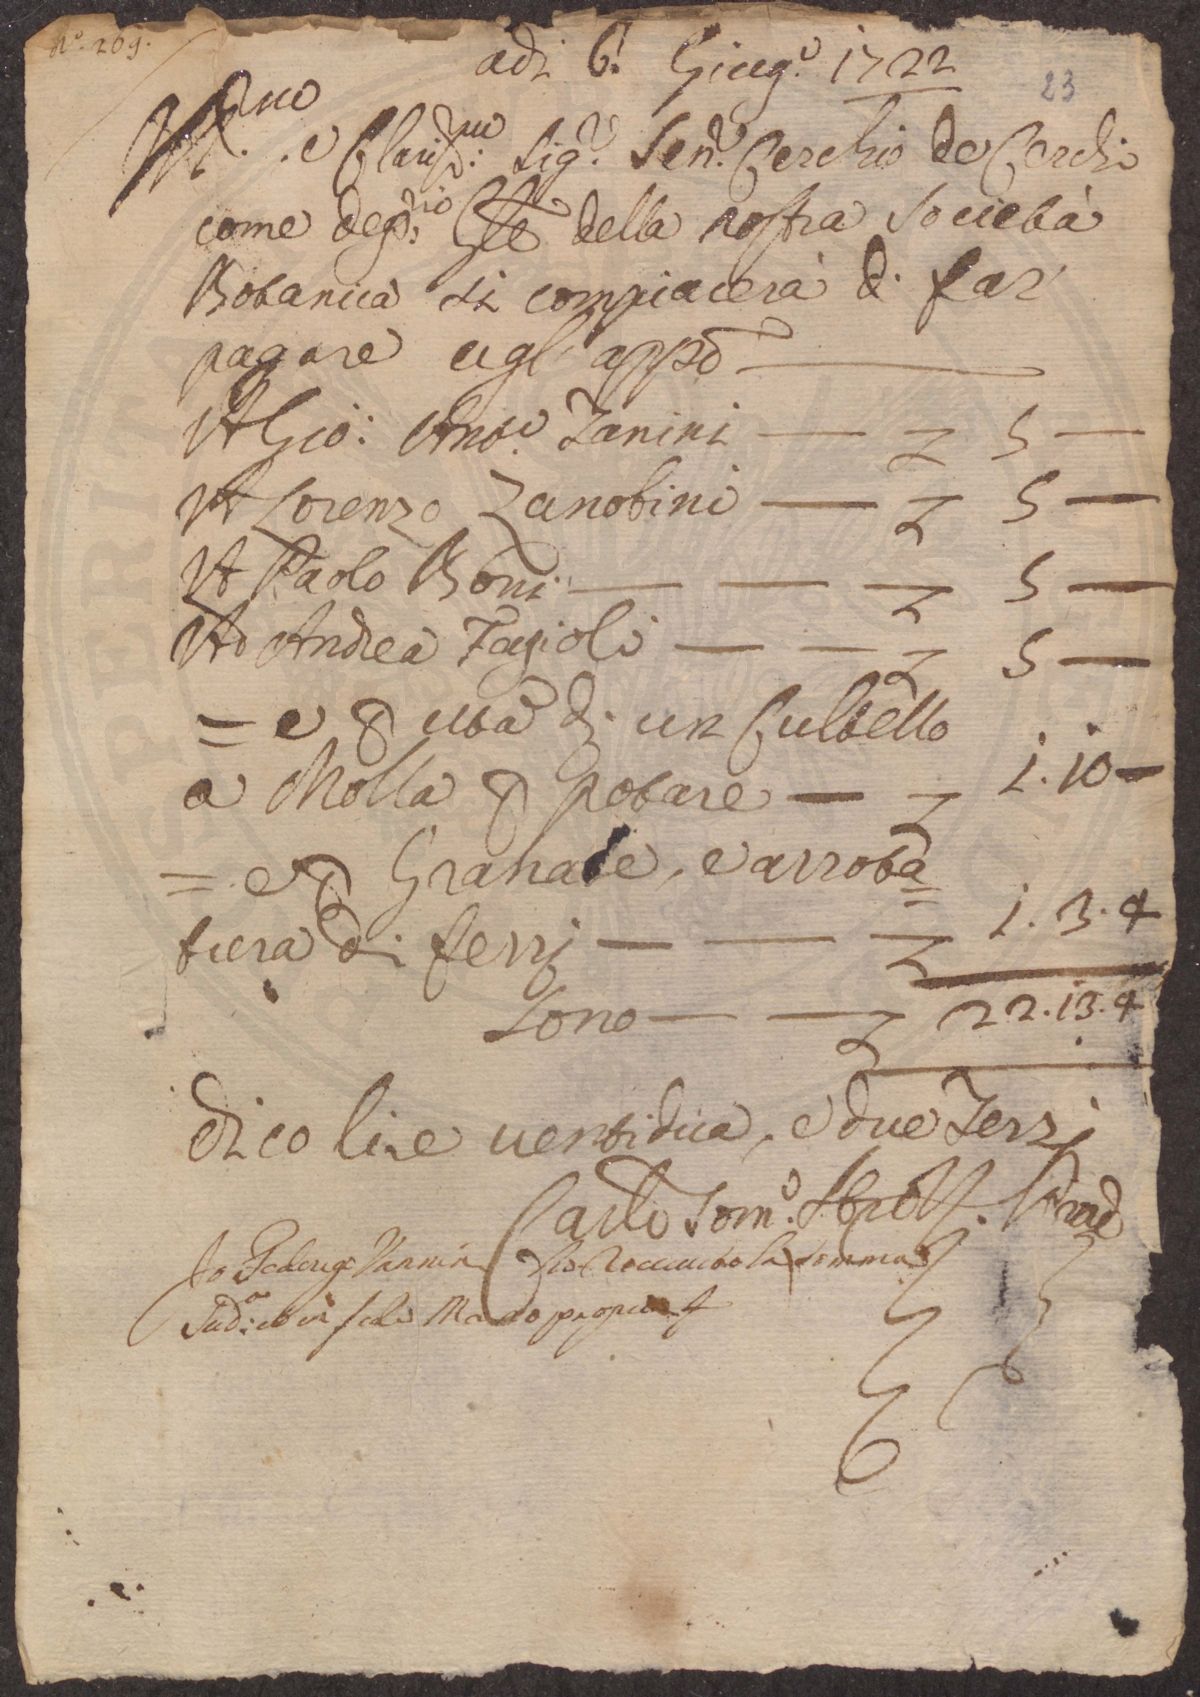 N.º 209.
adì 6: Giug.º 1722
23
Ill.mo e Clariss.mo Sig.r Sen.re Cerchio de Cerchi
come deg.mo Cte della nostra Società
Botanica si compiacerà di far
pagare agl' appo
A Gio: Ant.º Zanini — — 5 —
A Lorenzo Zanobini — — 5 —
A Paolo Boni — — — 5 —
Ad Andrea Fagioli — — — 5 —
= e p uta di un Cultello
a Molla p potare — — 1.10 —
= e p Granate, e arrota=
tura di ferri — — — 1.3.4
Sono — — 22.13.4
dico lire ventidua, e due Terzi
Carlo Tom.º Strozzi Prov.e
Io Federigo Vannini ho riceuuto la somma
Sud.a et in fede Mano propria